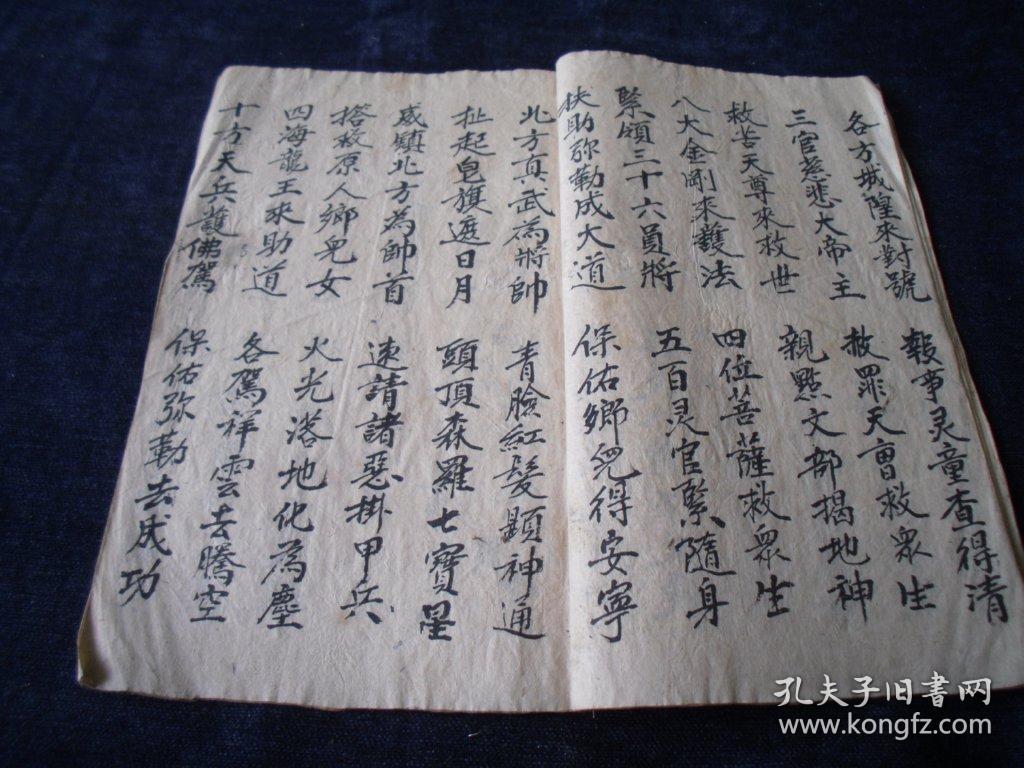 各方城隍來對號 報事灵童查得清
三官慈悲大帝主 赦罪天曹救眾生
救苦天尊來救世 親點文部揭地神
八大金剛來護法 四位菩薩救眾生
緊領三十六員將 五百灵官緊隨身
扶助弥勒成大道 保佑鄉兒得安寧
北方真武為將帥 青臉紅髮顯神通
扯起皂旗遮日月 頭頂森羅七寶星
威鎮北方為帥首 速請諸惡掛甲兵
搭救原人鄉兒女 火光落地化為塵
四海龍王來助道 各駕祥雲去騰空
十方天兵護佛駕 保佑弥勒去成功
孔夫子旧书网
www.kongfz.com